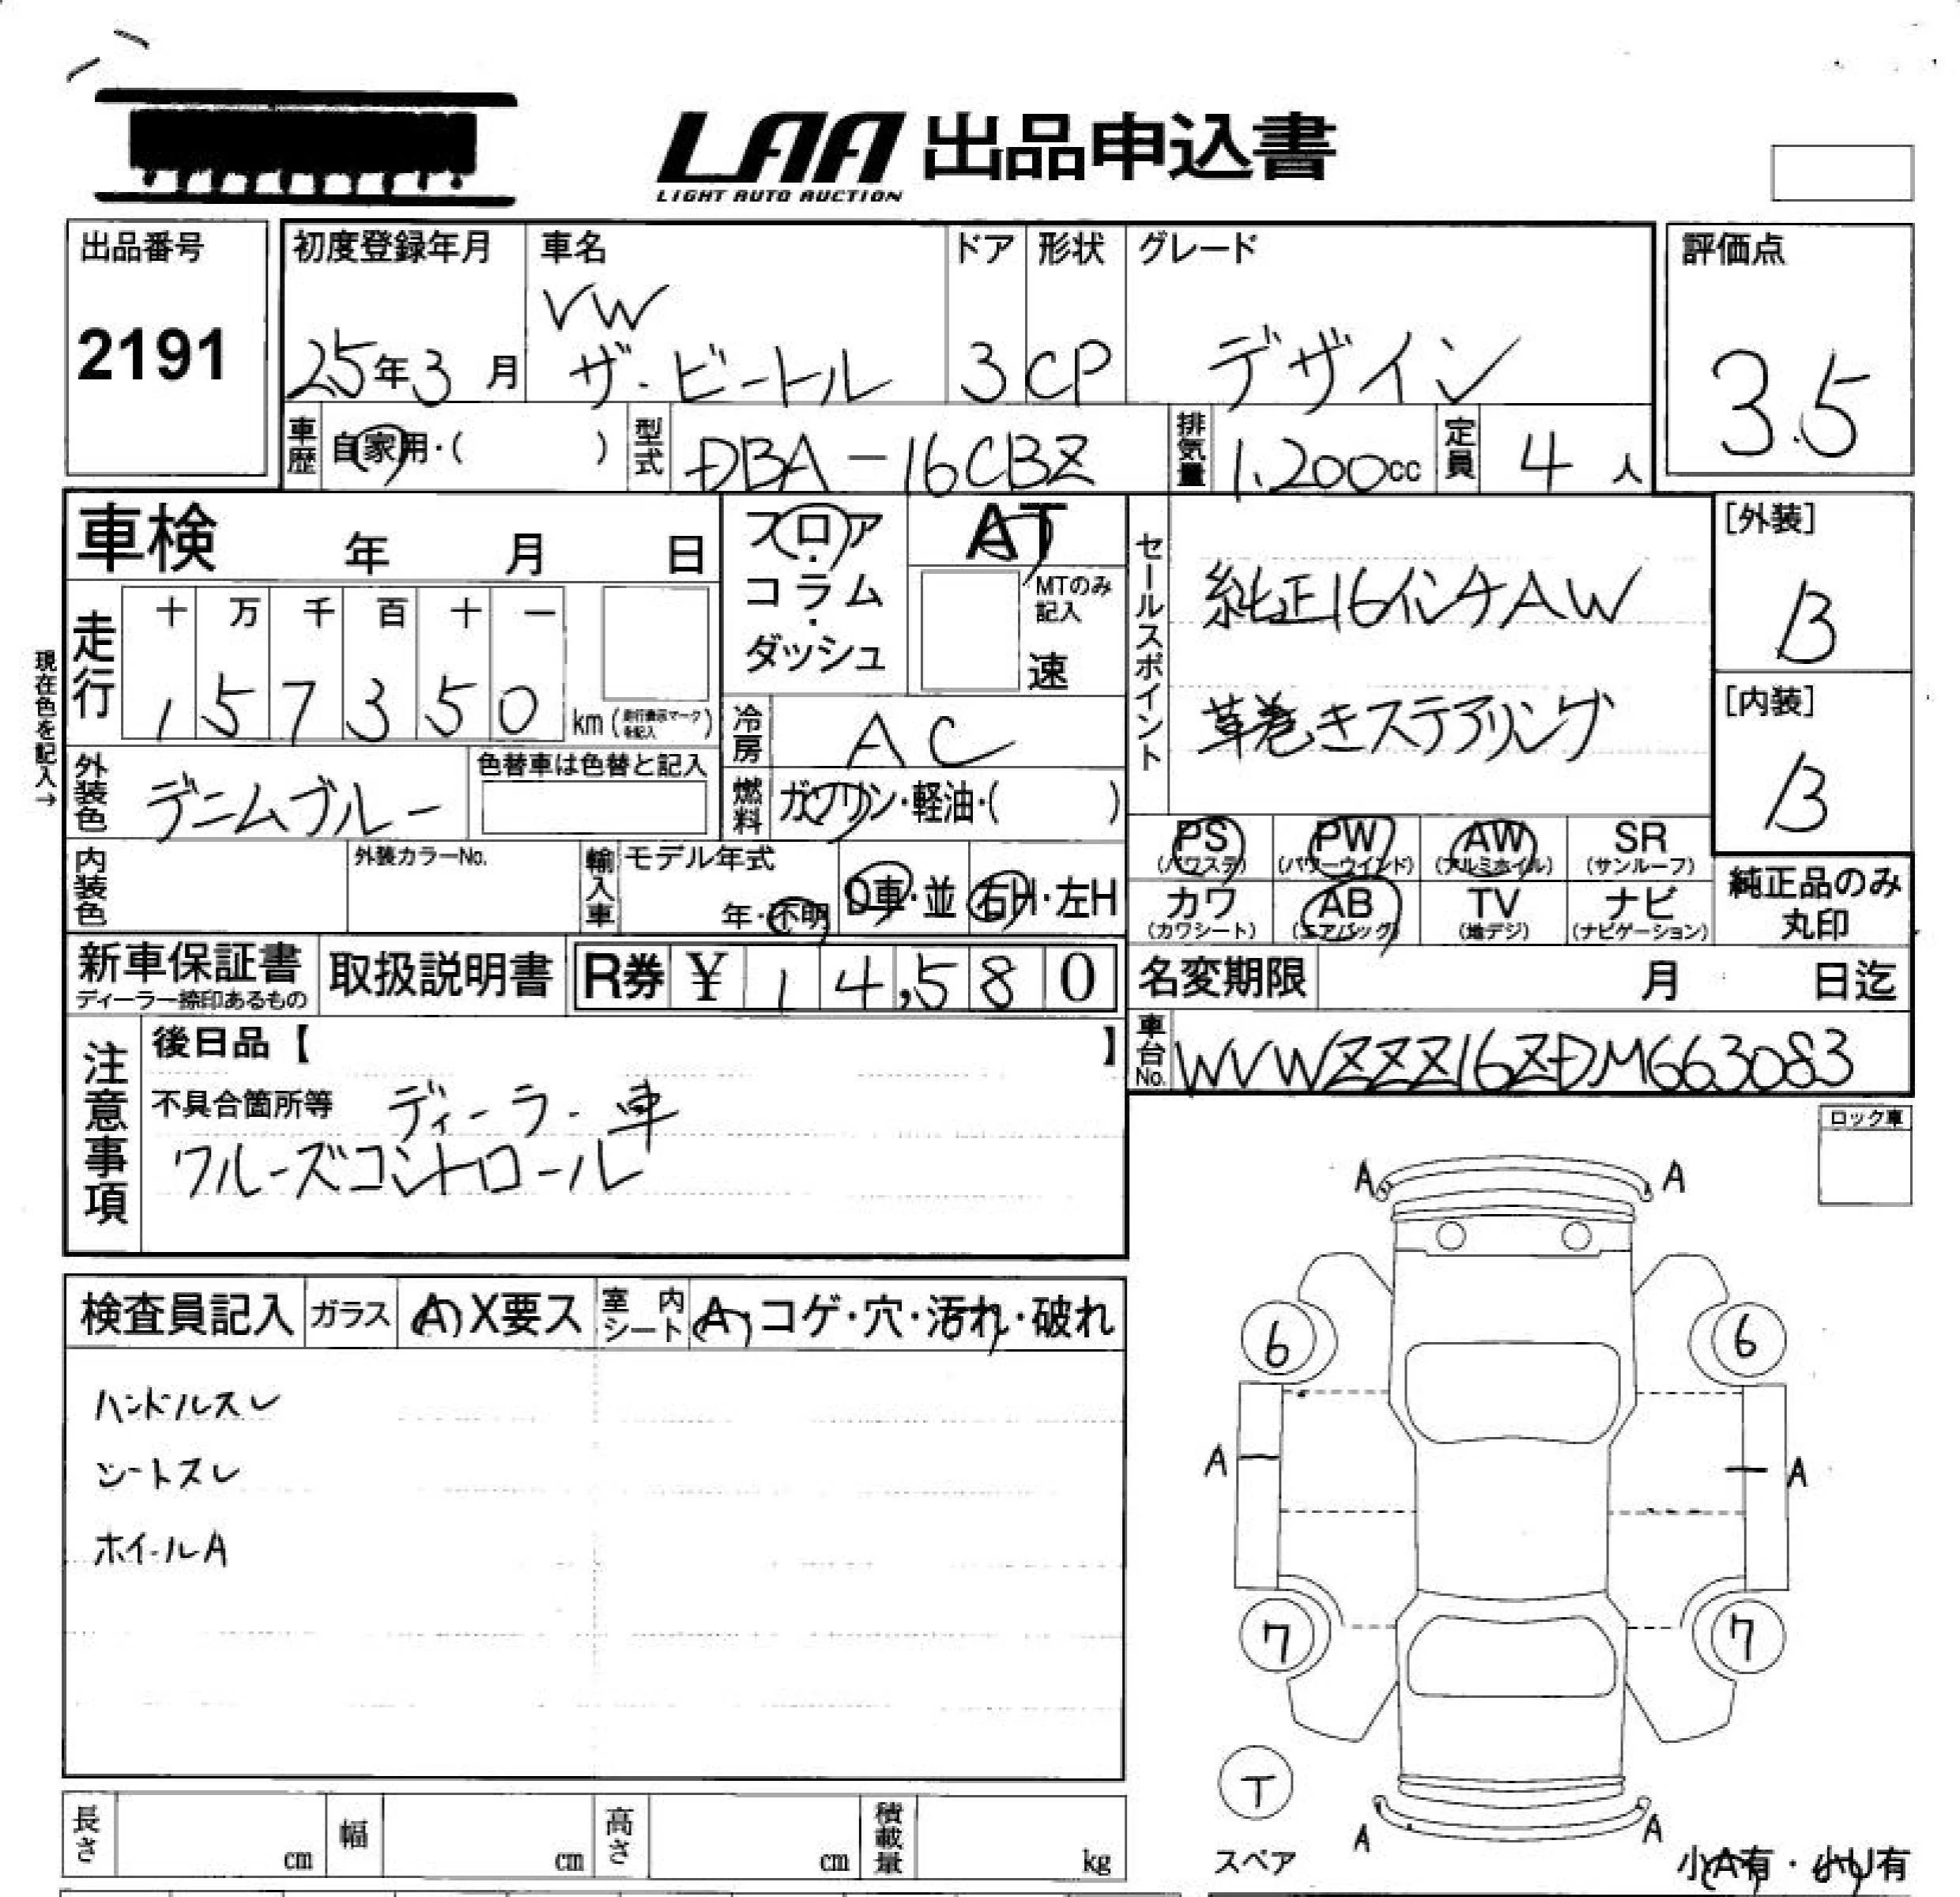 LAA 出品申込書
LIGHT AUTO AUCTION
出品番号
2191
初度登録年月
25年3月
車名
VW
ザ・ビートル
ドア
3
形状
CP
グレード
デザイン
評価点
3.5
車歴
自家用・( )
型式
DBA-16CBZ
排気量
1,200cc
定員
4人
車検 年 月 日
フロア・コラム・ダッシュ
AT
MTのみ記入
速
セールスポイント
純正16インチAW
革巻きステアリング
[外装]
B
[内装]
B
現在色を記入→
走行
十 万 千 百 十 一
1 5 7 3 5 0 km (走行表示マークを記入)
冷房
AC
外装色
デニムブルー
色替車は色替と記入
燃料
ガソリン・軽油・( )
PS (パワステ)
PW (パワーウインド)
AW (アルミホイル)
SR (サンルーフ)
カワ (カワシート)
AB (エアバッグ)
TV (地デジ)
ナビ (ナビゲーション)
純正品のみ丸印
内装色
外装カラーNo.
輸入車
モデル年式
年・不明
D車・並
右H・左H
新車保証書
ディーラー捺印あるもの
取扱説明書
R券 ¥ 1 4,5 8 0
名変期限 月 日迄
車台No.
WVWZZZ16ZDM663083
注意事項
後日品【 】
不具合箇所等 ディーラー車
クルーズコントロール
ロック車
検査員記入
ガラス
A・X要ス
室内シート
A・コゲ・穴・汚れ・破れ
ハンドルスレ
シートスレ
ホイールA
A A
6 6
A A
7 7
T
スペア
A A
小A有・小U有
長さ cm
幅 cm
高さ cm
積載量 kg